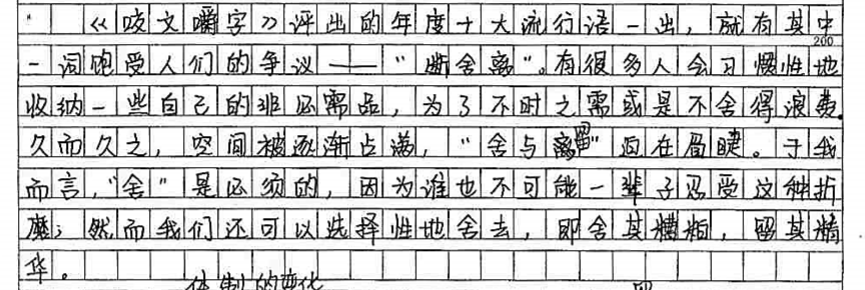 " 《咬文嚼字》评出的年度十大流行语一出，就有其中
200
一词饱受人们的争议——"断舍离"。有很多人会习惯性地
收纳一些自己的非必需品，为了不时之需或是不舍得浪费。
久而久之，空间被逐渐占满，"舍与留"迫在眉睫。于我
而言，"舍"是必须的，因为谁也不可能一辈子忍受这种折
磨；然而我们还可以选择性地舍去，即舍其糟粕，留其精
华。
体制的变化